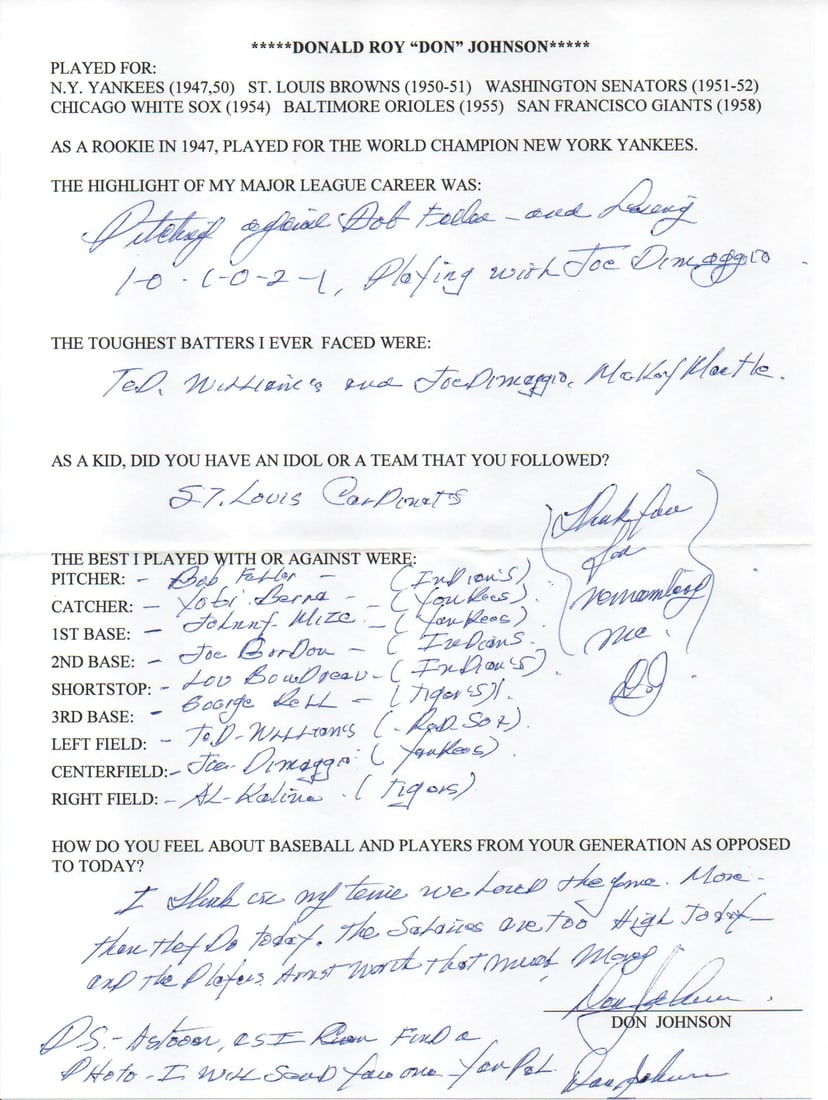 *****DONALD ROY “DON” JOHNSON*****
PLAYED FOR:
N.Y. YANKEES (1947,50) ST. LOUIS BROWNS (1950-51) WASHINGTON SENATORS (1951-52)
CHICAGO WHITE SOX (1954) BALTIMORE ORIOLES (1955) SAN FRANCISCO GIANTS (1958)
AS A ROOKIE IN 1947, PLAYED FOR THE WORLD CHAMPION NEW YORK YANKEES.
THE HIGHLIGHT OF MY MAJOR LEAGUE CAREER WAS:
Pitching against Bob Feller - and Losing
1-0 - 1-0 - 2-1, Playing with Joe Dimaggio
THE TOUGHEST BATTERS I EVER FACED WERE:
Ted. Williams and Joe Dimaggio, Mantle.
AS A KID, DID YOU HAVE AN IDOL OR A TEAM THAT YOU FOLLOWED?
ST. Louis Cardinals
Thank you
for
me.
DJ
THE BEST I PLAYED WITH OR AGAINST WERE:
PITCHER: - Bob Feller - (Indian's)
CATCHER: - Yogi Berra - (Yankees)
1ST BASE: - Johnny Mize - (Yankees)
2ND BASE: - Joe Gordon - (Indians
SHORTSTOP: - Lou Boudreau - (Indian's)
3RD BASE: - George Kell - (Tiger's)
LEFT FIELD: - Ted - Williams (Red Sox)
CENTERFIELD: - Joe Dimaggio (Yankees)
RIGHT FIELD: - AL - Kaline (Tigers)
HOW DO YOU FEEL ABOUT BASEBALL AND PLAYERS FROM YOUR GENERATION AS OPPOSED
TO TODAY?
I think in my time we Loved the game. More
than they Do today. The Salaries are too High Today -
and the Players Arnst Worth that much Money
Don Johnson
DON JOHNSON
P.S. - As soon, as I can Find a
Photo - I Will Send you one - Your Pal
Don Johnson